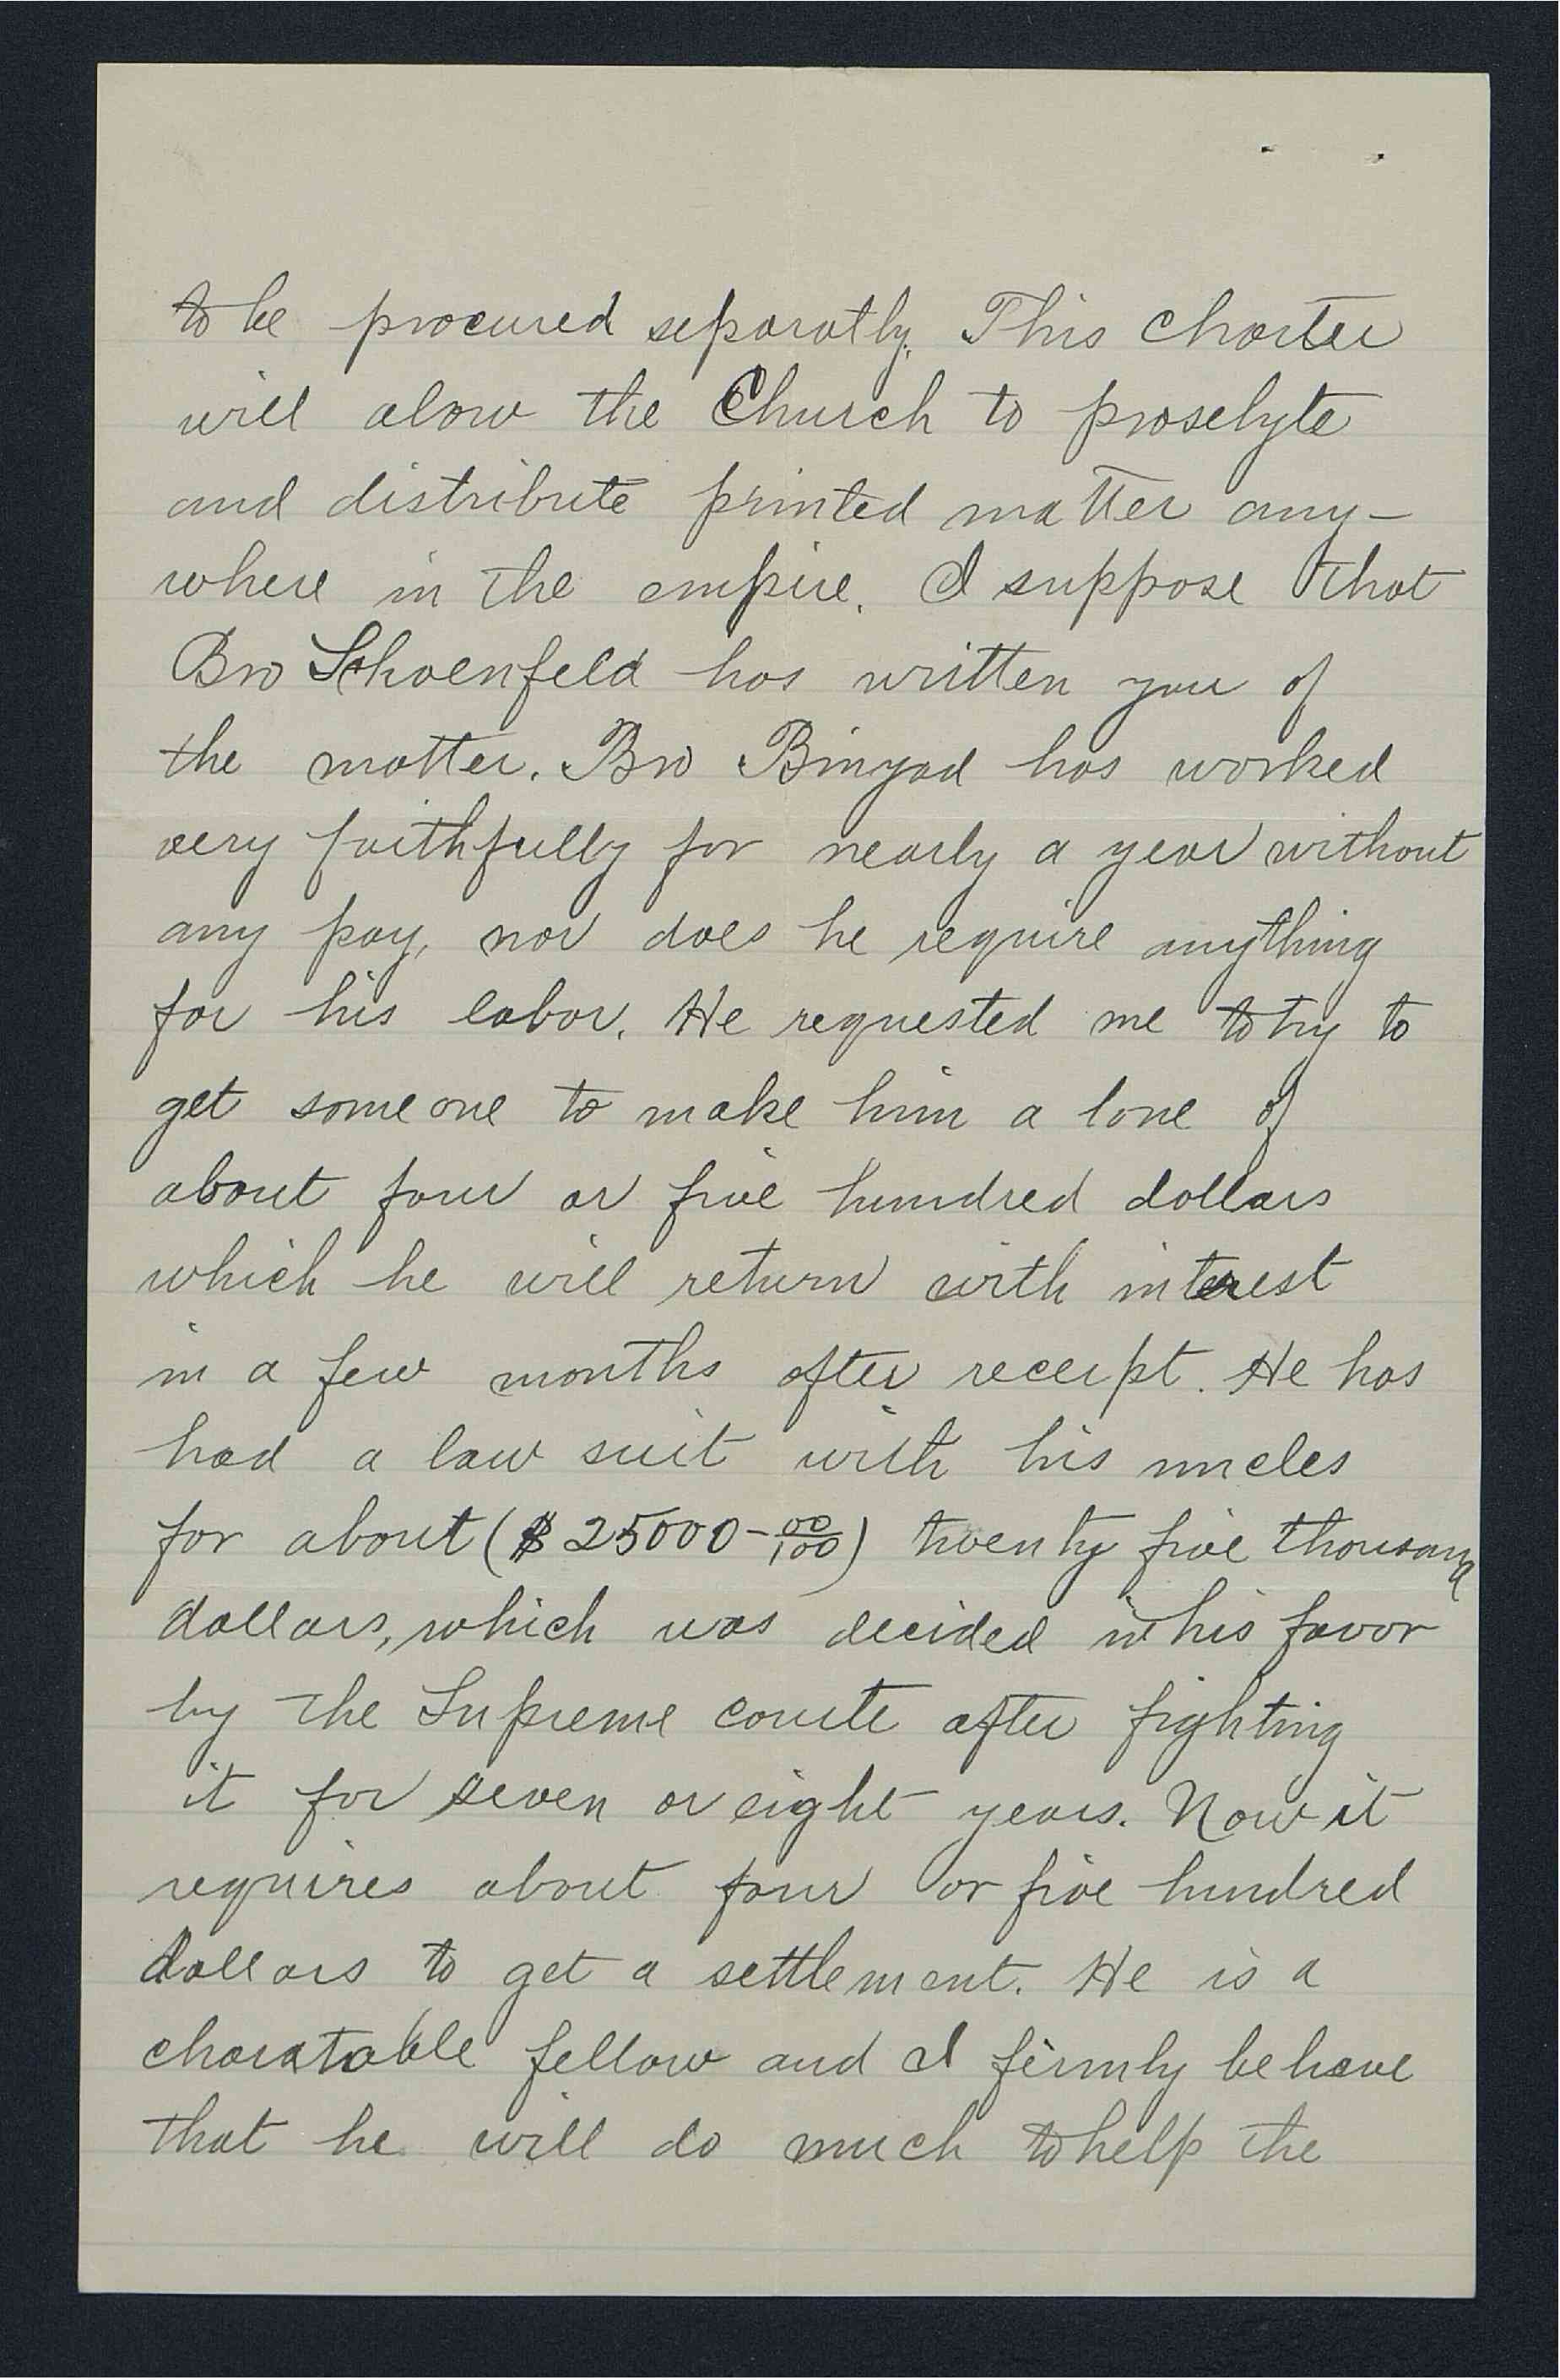 to be procured separatly. This charter
will alow the Church to proselyte
and distribute printed matter any-
where in the empire. I suppose that
Bro Schoenfeld has written you of
the matter. Bro Binyad has worked
very faithfully for nearly a year without
any pay, nor does he require anything
for his labor. He requested me to try to
get some one to make him a lone of
about four or five hundred dollars
which he will return with interest
in a few months after receipt. He has
had a law suit with his uncles
for about ($25000-00/100) twenty five thousand
dollars, which was decided in his favor
by the Supreme courte after fighting
it for seven or eight years. Now it
requires about four or five hundred
dollars to get a settlement. He is a
charatable fellow and I firmly believe
that he will do much to help the